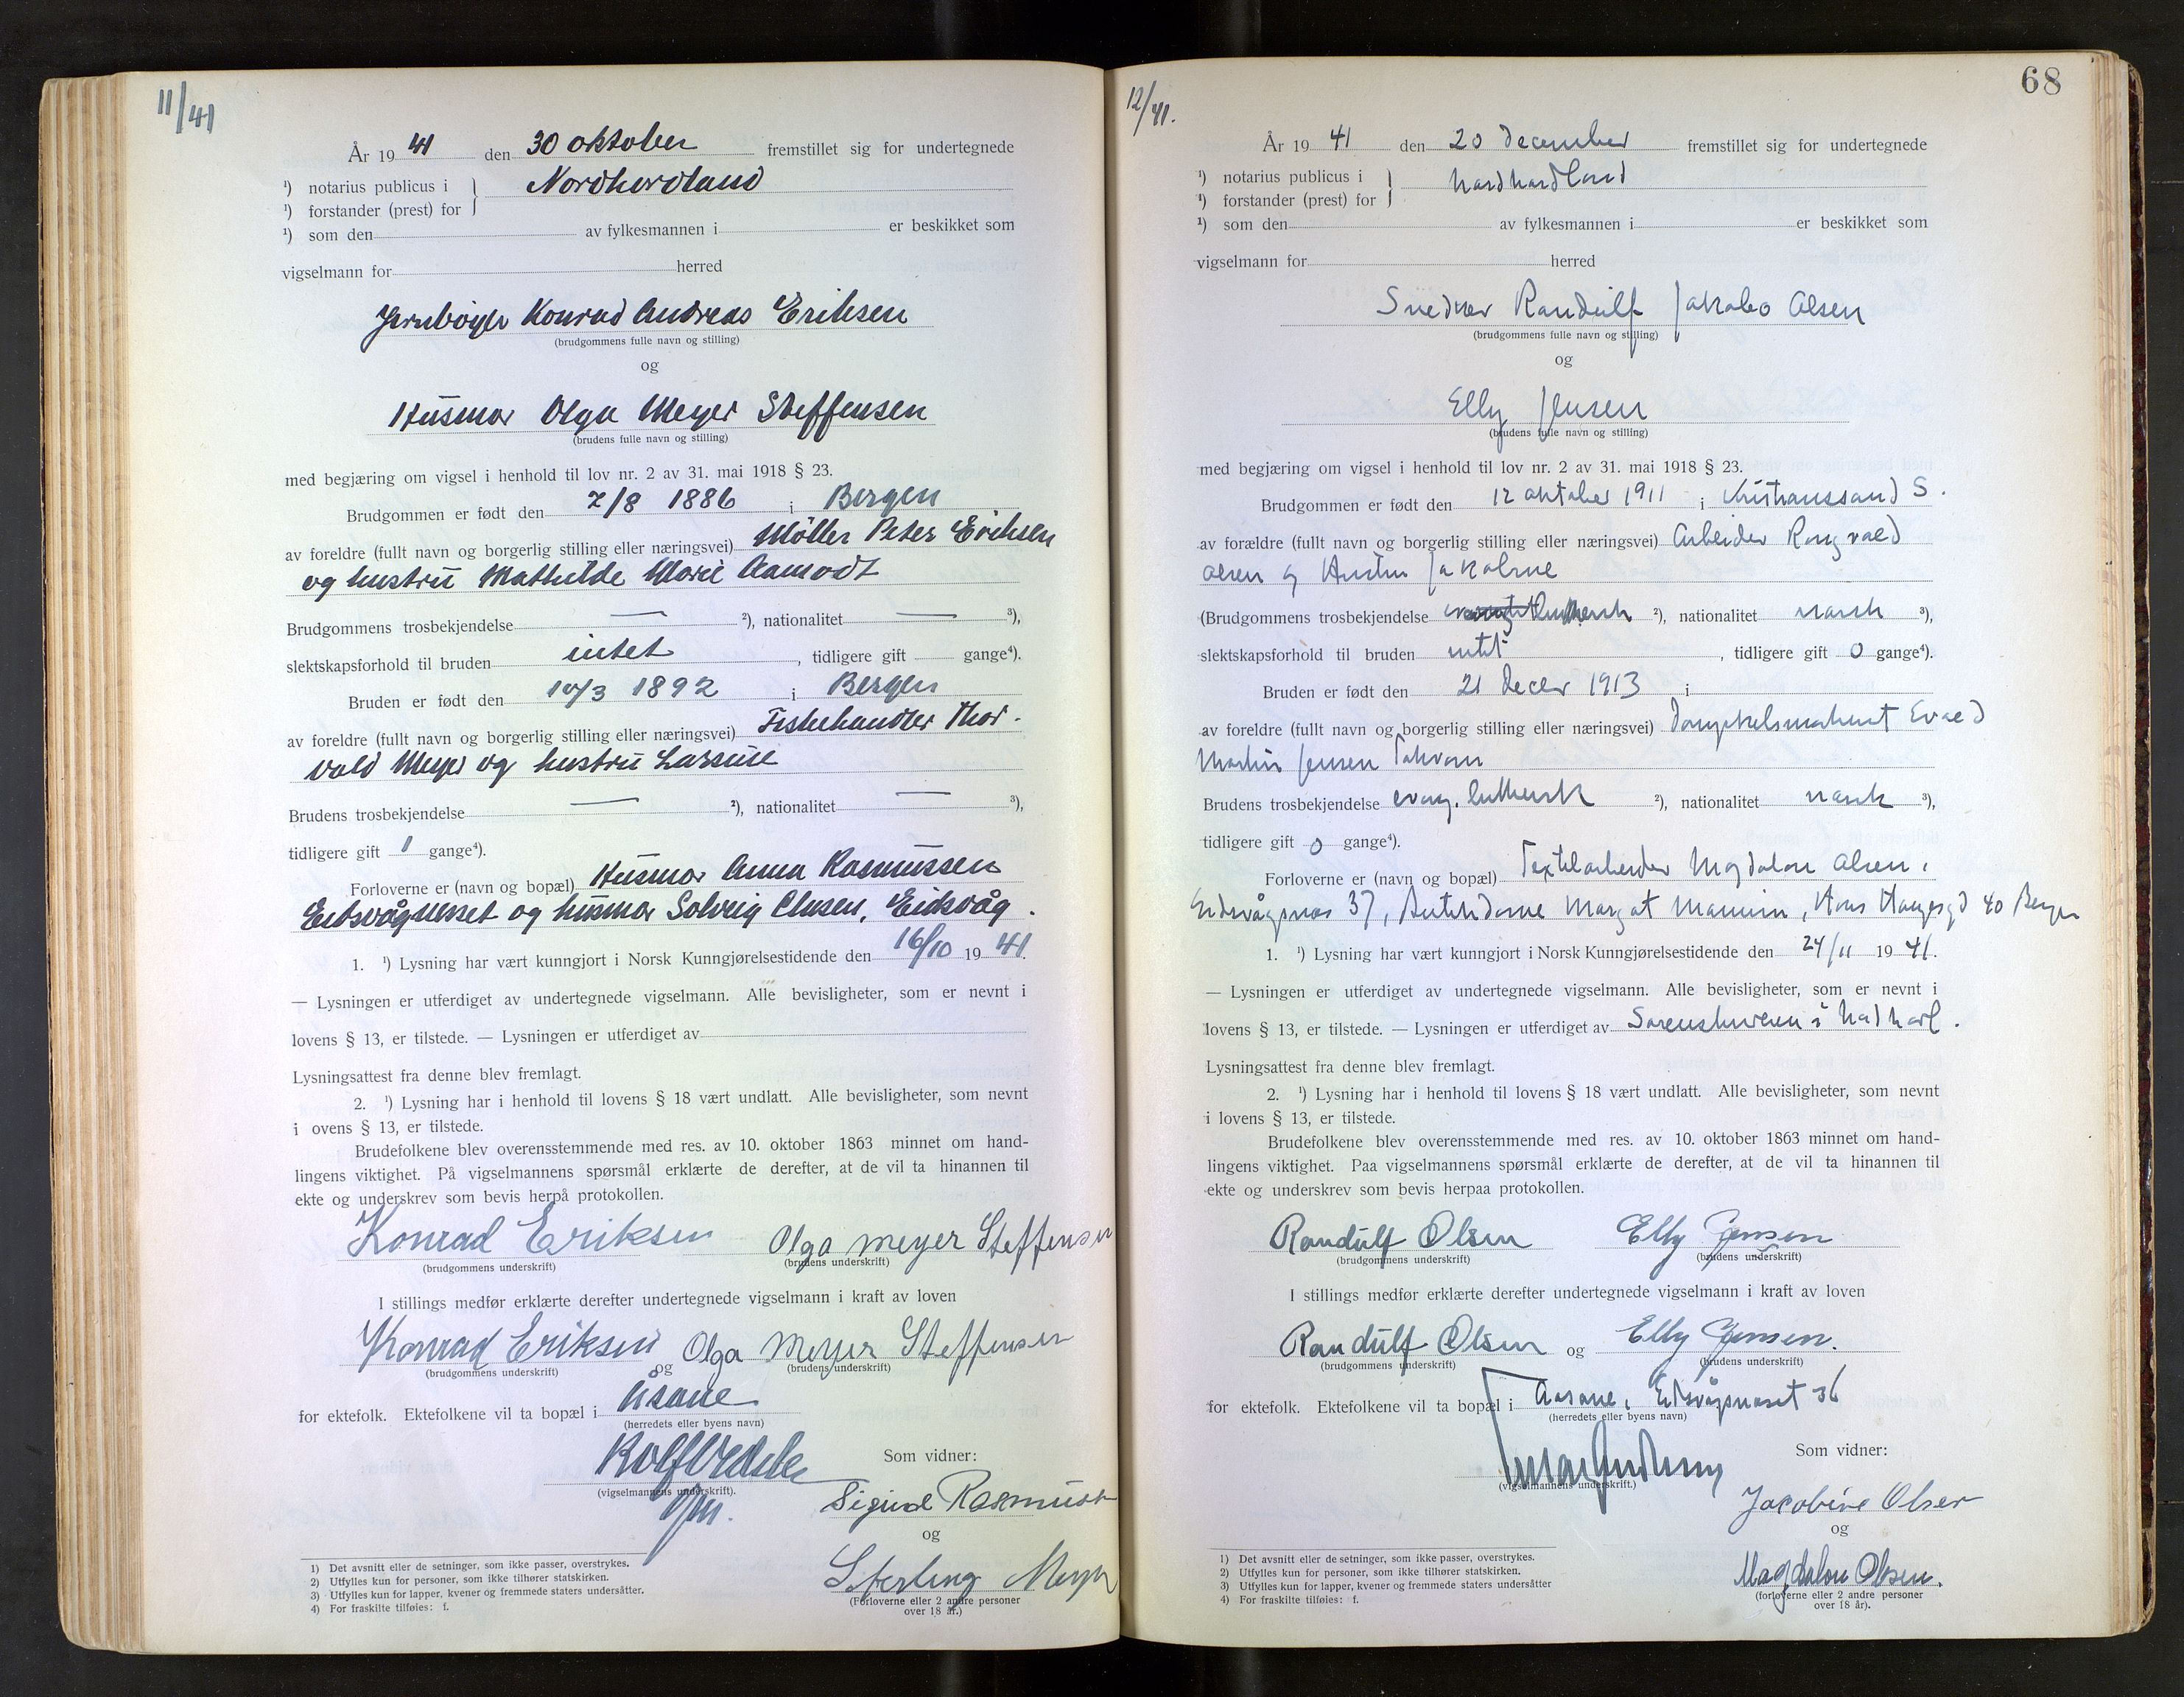 11/41
År 19 41 den 30 oktober fremstillet sig for undertegnede
¹) notarius publicus i } Nordhordland
¹) forstander (prest) for
¹) som den av fylkesmannen i er beskikket som
vigselmann for herred
Konrad Andreas Eriksen
(brudgommens fulle navn og stilling)
og
Husmor Olga Meyer Steffensen
(brudens fulle navn og stilling)
med begjæring om vigsel i henhold til lov nr. 2 av 31. mai 1918 § 23.
Brudgommen er født den 7/8 1886 i Bergen
av foreldre (fullt navn og borgerlig stilling eller næringsvei) Møller Peter Eriksen
og hustru Mathilde Marie Aamodt
Brudgommens trosbekjendelse — ²), nationalitet — ³),
slektskapsforhold til bruden intet , tidligere gift gange⁴).
Bruden er født den 10/3 1892 i Bergen
av foreldre (fullt navn og borgerlig stilling eller næringsvei) Fiskehandler Thor-
vald Meyer og hustru Larsine
Brudens trosbekjendelse — ²), nationalitet — ³),
tidligere gift 1 gange⁴).
Forloverne er (navn og bopæl) Husmor Anna Rasmussen
Eidsvågneset og husmor Solveig Clusen, Eidsvåg.
1. ¹) Lysning har vært kunngjort i Norsk Kunngjørelsestidende den 16/10 19 41.
— Lysningen er utferdiget av undertegnede vigselmann. Alle bevisligheter, som er nevnt i
lovens § 13, er tilstede. — Lysningen er utferdiget av
Lysningsattest fra denne blev fremlagt.
2. ¹) Lysning har i henhold til lovens § 18 vært undlatt. Alle bevisligheter, som nevnt
i ovens § 13, er tilstede.
Brudefolkene blev overensstemmende med res. av 10. oktober 1863 minnet om hand-
lingens viktighet. På vigselmannens spørsmål erklærte de derefter, at de vil ta hinannen til
ekte og underskrev som bevis herpå protokollen.
Konrad Eriksen Olga Meyer Steffensen
(brudgommens underskrift) (brudens underskrift)
I stillings medfør erklærte derefter undertegnede vigselmann i kraft av loven
Konrad Eriksen og Olga Meyer Steffensen
(brudgommens underskrift) (brudens underskrift)
for ektefolk. Ektefolkene vil ta bopæl i Åsane
(herredets eller byens navn)
Som vidner:
(vigselmannens underskrift).
Sigurd Rasmussen
og
Sterling Meyer
(Forloverne eller 2 andre personer
over 18 år.)
1) Det avsnitt eller de setninger, som ikke passer, overstrykes.
2) Utfylles kun for personer, som ikke tilhører statskirken.
3) Utfylles kun for lapper, kvener og fremmede staters undersåtter.
4) For fraskilte tilføies: f.
68
12/41.
År 19 41 den 20 december fremstillet sig for undertegnede
¹) notarius publicus i } Nordhordland
¹) forstander (prest) for
¹) som den av fylkesmannen i er beskikket som
vigselmann for herred
Snedker Randulf Jakobo Olsen
(brudgommens fulle navn og stilling)
og
Elly Jensen
(brudens fulle navn og stilling)
med begjæring om vigsel i henhold til lov nr. 2 av 31. mai 1918 § 23.
Brudgommen er født den 12 oktober 1911 i Kristianssand S.
av forældre (fullt navn og borgerlig stilling eller næringsvei) Arbeider Rongvald
Olsen og Hustru Jakobine
(Brudgommens trosbekjendelse luthersk ²), nationalitet norsk ³),
slektskapsforhold til bruden intet , tidligere gift 0 gange⁴).
Bruden er født den 21 decbr 1913 i
av foreldre (fullt navn og borgerlig stilling eller næringsvei) Evald
Martin Jensen
Brudens trosbekjendelse evang. luthersk ²), nationalitet norsk ³),
tidligere gift 0 gange⁴).
Forloverne er (navn og bopæl) Textilarbeider Magdalon Olsen,
Eidsvågsnes 37, Margot , Hans Haugesgt 40 Bergen
1. ¹) Lysning har vært kunngjort i Norsk Kunngjørelsestidende den 24/11 19 41.
— Lysningen er utferdiget av undertegnede vigselmann. Alle bevisligheter, som er nevnt i
lovens § 13, er tilstede. — Lysningen er utferdiget av Sorenskriveren i Nordhordl.
Lysningsattest fra denne blev fremlagt.
2. ¹) Lysning har i henhold til lovens § 18 vært undlatt. Alle bevisligheter, som nevnt
i lovens § 13, er tilstede.
Brudefolkene blev overensstemmende med res. av 10. oktober 1863 minnet om hand-
lingens viktighet. Paa vigselmannens spørsmål erklærte de derefter, at de vil ta hinannen til
ekte og underskrev som bevis herpaa protokollen.
Randulf Olsen Elly Jensen
(brudgommens underskrift) (brudens underskrift)
I stillings medfør erklærte derefter undertegnede vigselmann i kraft av loven
Randulf Olsen og Elly Jensen.
(brudgommens underskrift) (brudens underskrift)
for ektefolk. Ektefolkene vil ta bopæl i Aasane, Eidsvågsneset 36
(herredets eller byens navn)
Som vidner:
(vigselmannens underskrift.)
Jacobine Olsen
og
Magdalon Olsen.
(forloverne eller 2 andre personer
over 18 år).
1) Det avsnitt eller de setninger, som ikke passer, overstrykes.
2) Utfylles kun for personer, som ikke tilhører statskirken.
3) Utfylles kun for lapper, kvener og fremmede staters undersåtter
4) For fraskilte tilføies: f.